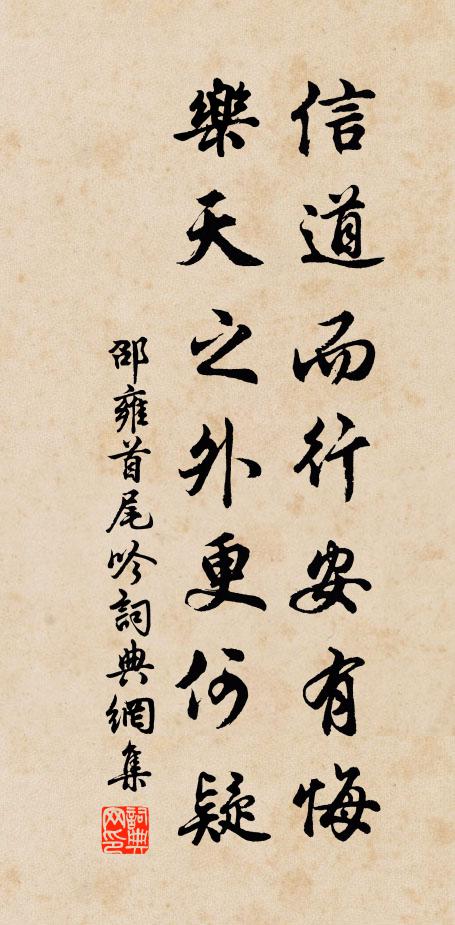 信道而行安有悔
樂天之外更何疑
邵雍首尾吟詞典網集
詞典網印